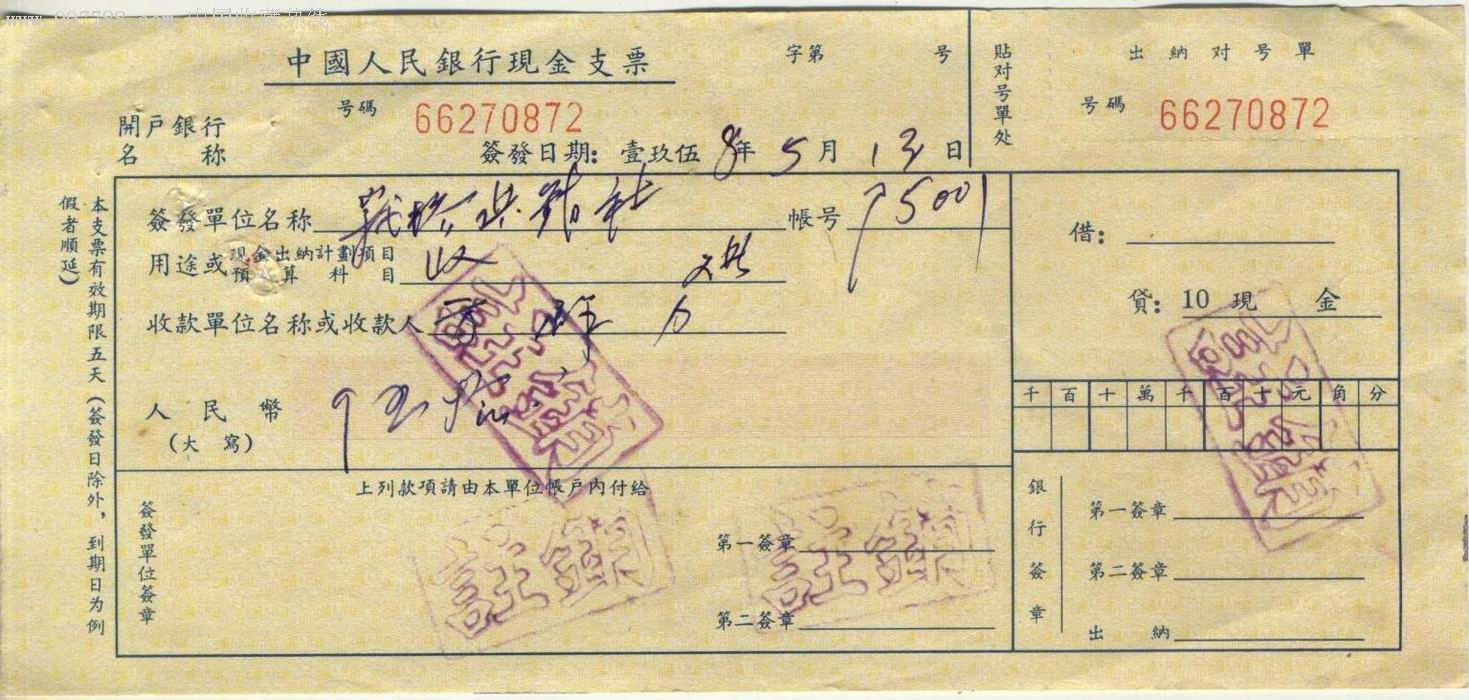 www.997788.com 中国收藏热线
中國人民銀行現金支票
字第 号
号碼 66270872
開戶銀行
名 称
簽發日期: 壹玖伍8年5月13日
貼对号單处
出納对号單
号碼 66270872
本支票有效期限五天(簽發日除外,到期日为例
假者順延)
簽發單位名称
帳号 75001
用途或現金出納計劃項目
預算科目
收款單位名称或收款人
人民幣
(大寫)
借:
貸: 10 現 金
千 百 十 萬 千 百 十 元 角 分
上列款項請由本單位帳戶内付給
簽發單位簽章
第一簽章
第二簽章
銀行簽章
第一簽章
第二簽章
出 納
註銷
註銷